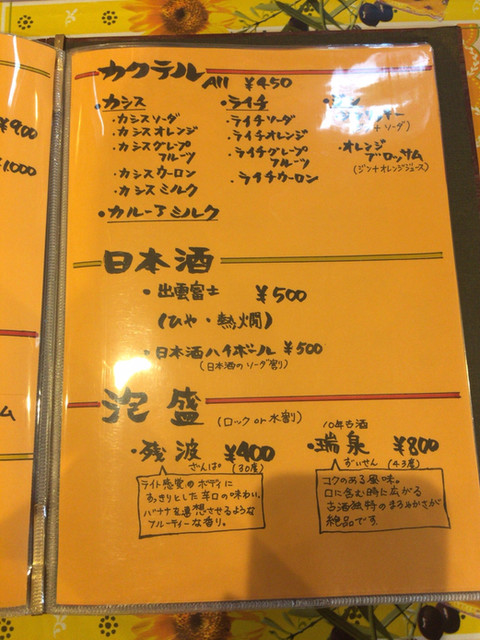 ¥900
¥1,000
ム
カクテル All ¥450
・カシス
・カシスソーダ
・カシスオレンジ
・カシスグレープ
フルーツ
・カシスウーロン
・カシスミルク
・カルーアミルク
・ライチ
・ライチソーダ
・ライチオレンジ
・ライチグレープ
フルーツ
・ライチウーロン
・オレンジ
ブロッサム
(ジン+オレンジジュース)
日本酒
・出雲富士 ¥500
(ひや・熱燗)
・日本酒ハイボール ¥500
(日本酒のソーダ割り)
泡盛 (ロック or 水割り)
・残波 ¥400
ざんぱ (30度)
ライト感覚のボディに
すっきりとした辛口の味わい。
バナナを連想させるような
フルーティーな香り。
10年古酒
・瑞泉 ¥800
ずいせん (43度)
コクのある風味。
口に含む時に広がる
古酒独特のまろやかさが
絶品です。